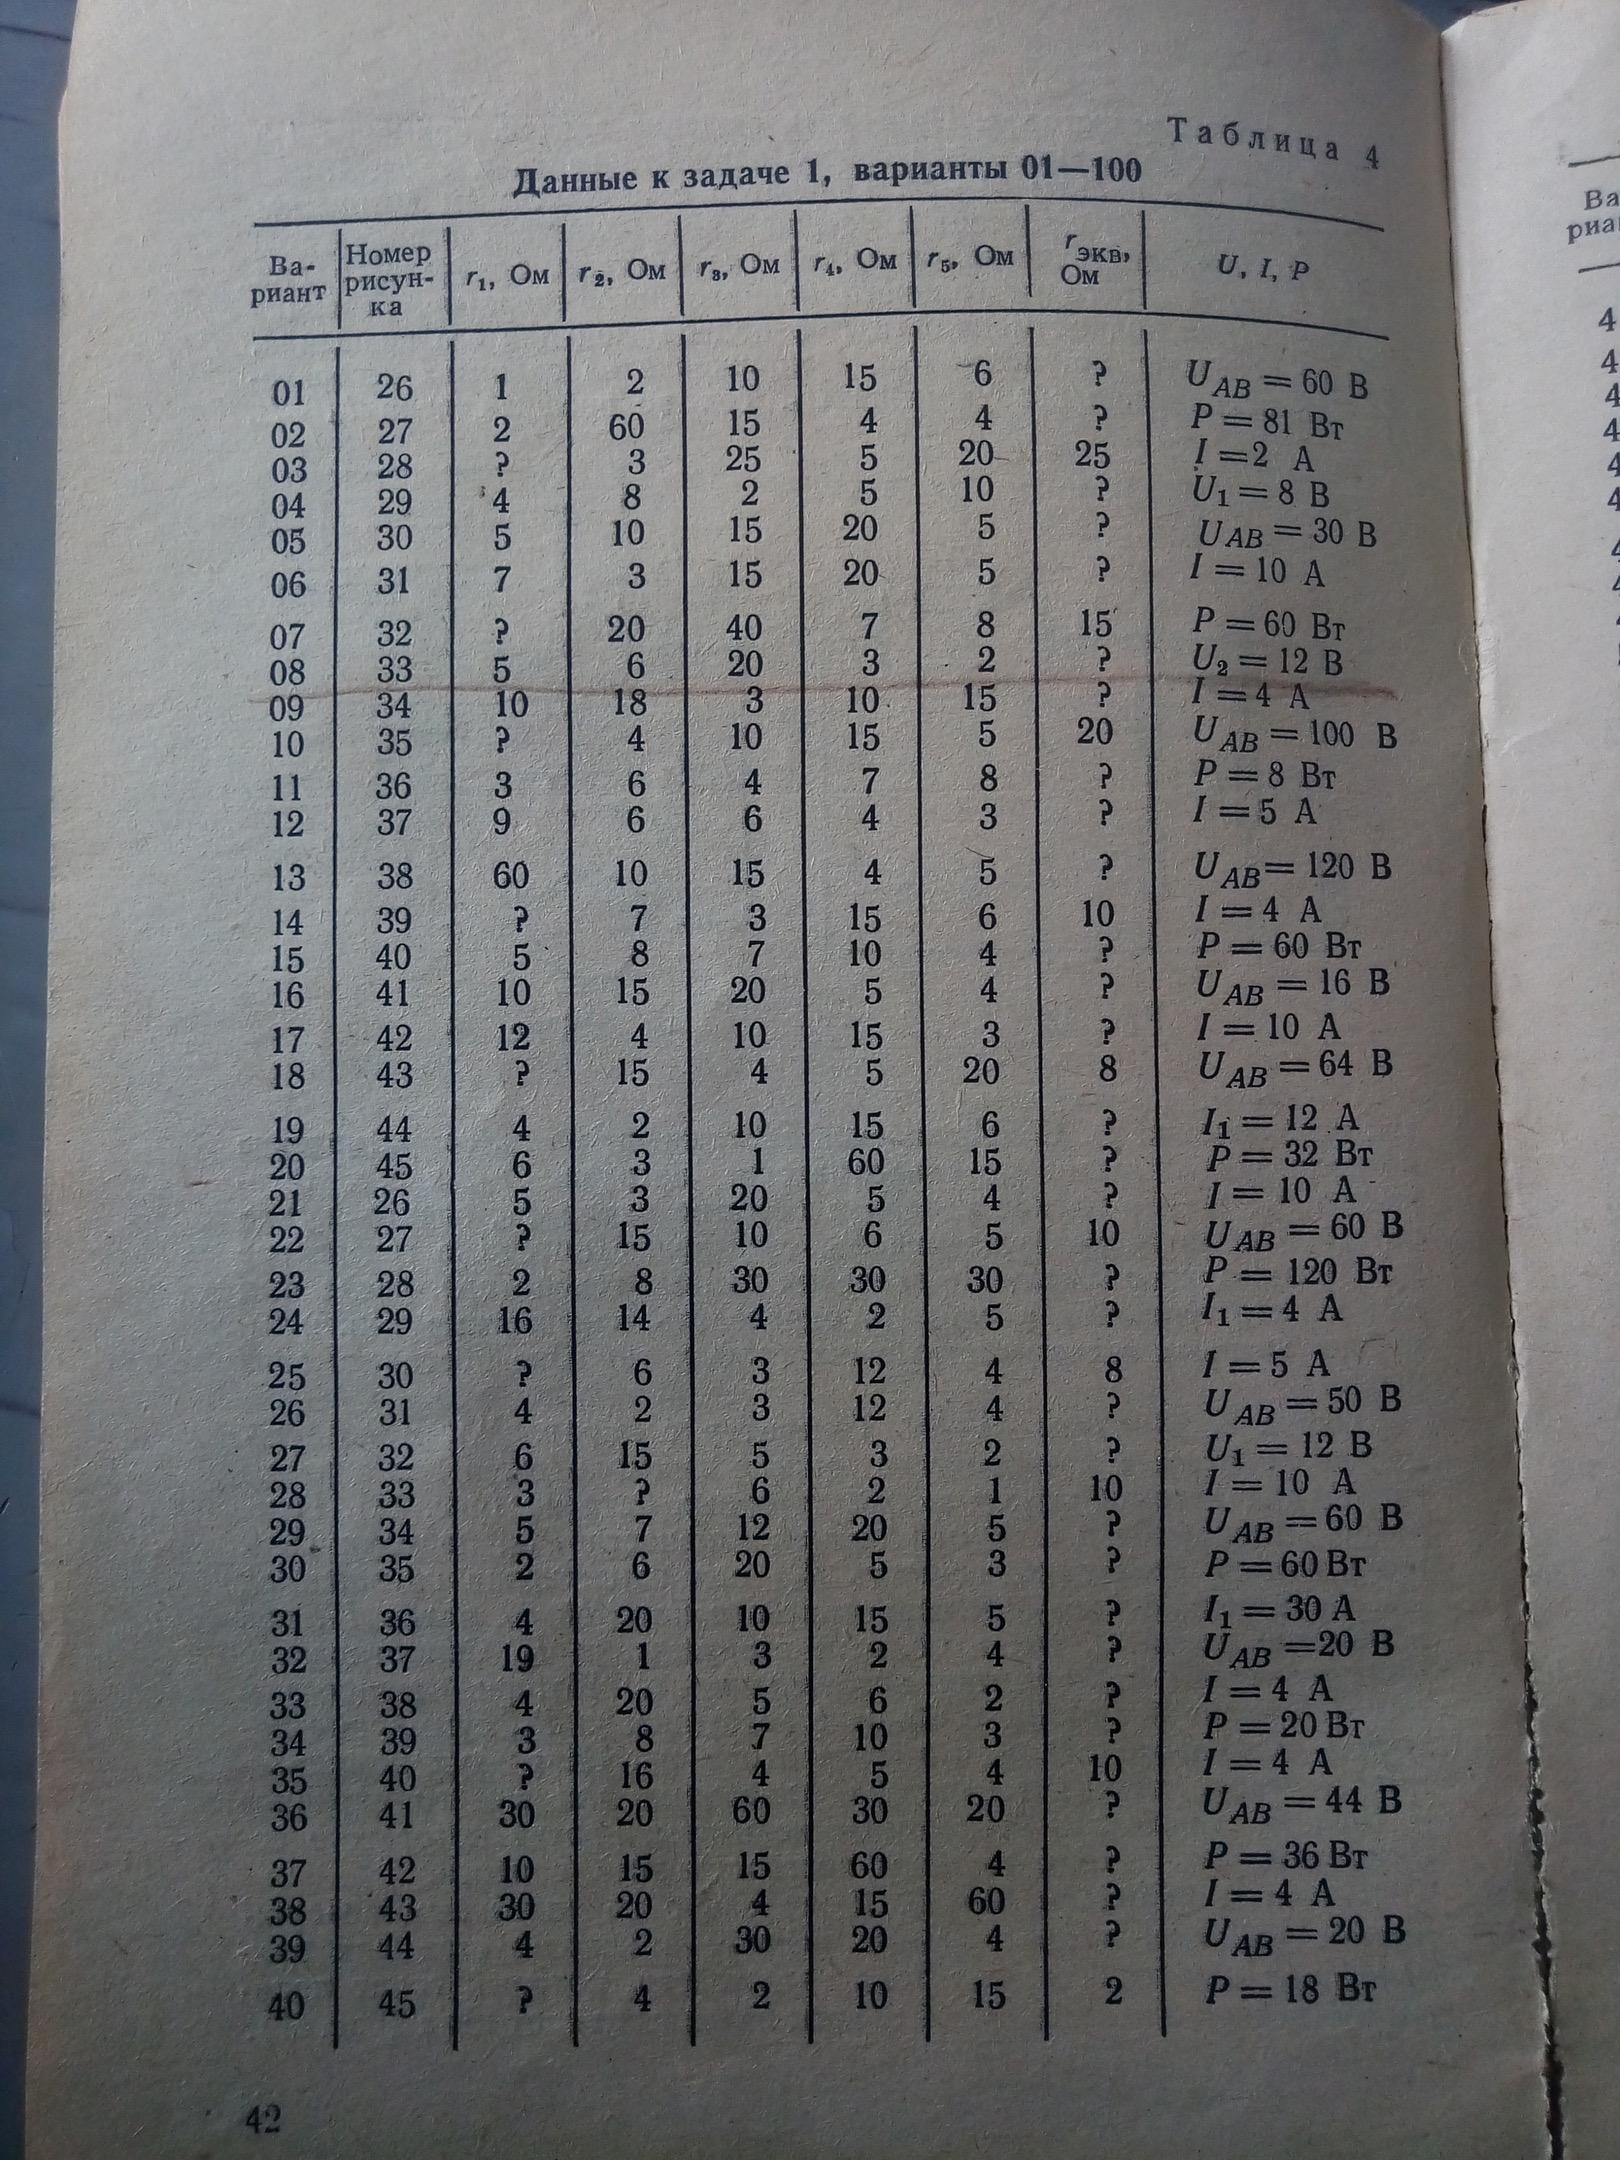 Таблица 4
Данные к задаче 1, варианты 01—100
Ва-риант Номер рисун-ка r1, Ом r2, Ом r3, Ом r4, Ом r5, Ом rэкв, Ом U, I, P
01 26 1 2 10 15 6 ? UAB = 60 В
02 27 2 60 15 4 4 ? P = 81 Вт
03 28 ? 3 25 5 20 25 I = 2 А
04 29 4 8 2 5 10 ? U1 = 8 В
05 30 5 10 15 20 5 ? UAB = 30 В
06 31 7 3 15 20 5 ? I = 10 А
07 32 ? 20 40 7 8 15 P = 60 Вт
08 33 5 6 20 3 2 ? U2 = 12 В
09 34 10 18 3 10 15 ? I = 4 А
10 35 ? 4 10 15 5 20 UAB = 100 В
11 36 3 6 4 7 8 ? P = 8 Вт
12 37 9 6 6 4 3 ? I = 5 А
13 38 60 10 15 4 5 ? UAB = 120 В
14 39 ? 7 3 15 6 10 I = 4 А
15 40 5 8 7 10 4 ? P = 60 Вт
16 41 10 15 20 5 4 ? UAB = 16 В
17 42 12 4 10 15 3 ? I = 10 А
18 43 ? 15 4 5 20 8 UAB = 64 В
19 44 4 2 10 15 6 ? I1 = 12 А
20 45 6 3 1 60 15 ? P = 32 Вт
21 26 5 3 20 5 4 ? I = 10 А
22 27 ? 15 10 6 5 10 UAB = 60 В
23 28 2 8 30 30 30 ? P = 120 Вт
24 29 16 14 4 2 5 ? I1 = 4 А
25 30 ? 6 3 12 4 8 I = 5 А
26 31 4 2 3 12 4 ? UAB = 50 В
27 32 6 15 5 3 2 ? U1 = 12 В
28 33 3 ? 6 2 1 10 I = 10 А
29 34 5 7 12 20 5 ? UAB = 60 В
30 35 2 6 20 5 3 ? P = 60 Вт
31 36 4 20 10 15 5 ? I1 = 30 А
32 37 19 1 3 2 4 ? UAB = 20 В
33 38 4 20 5 6 2 ? I = 4 А
34 39 3 8 7 10 3 ? P = 20 Вт
35 40 ? 16 4 5 4 10 I = 4 А
36 41 30 20 60 30 20 ? UAB = 44 В
37 42 10 15 15 60 4 ? P = 36 Вт
38 43 30 20 4 15 60 ? I = 4 А
39 44 4 2 30 20 4 ? UAB = 20 В
40 45 ? 4 2 10 15 2 P = 18 Вт
42